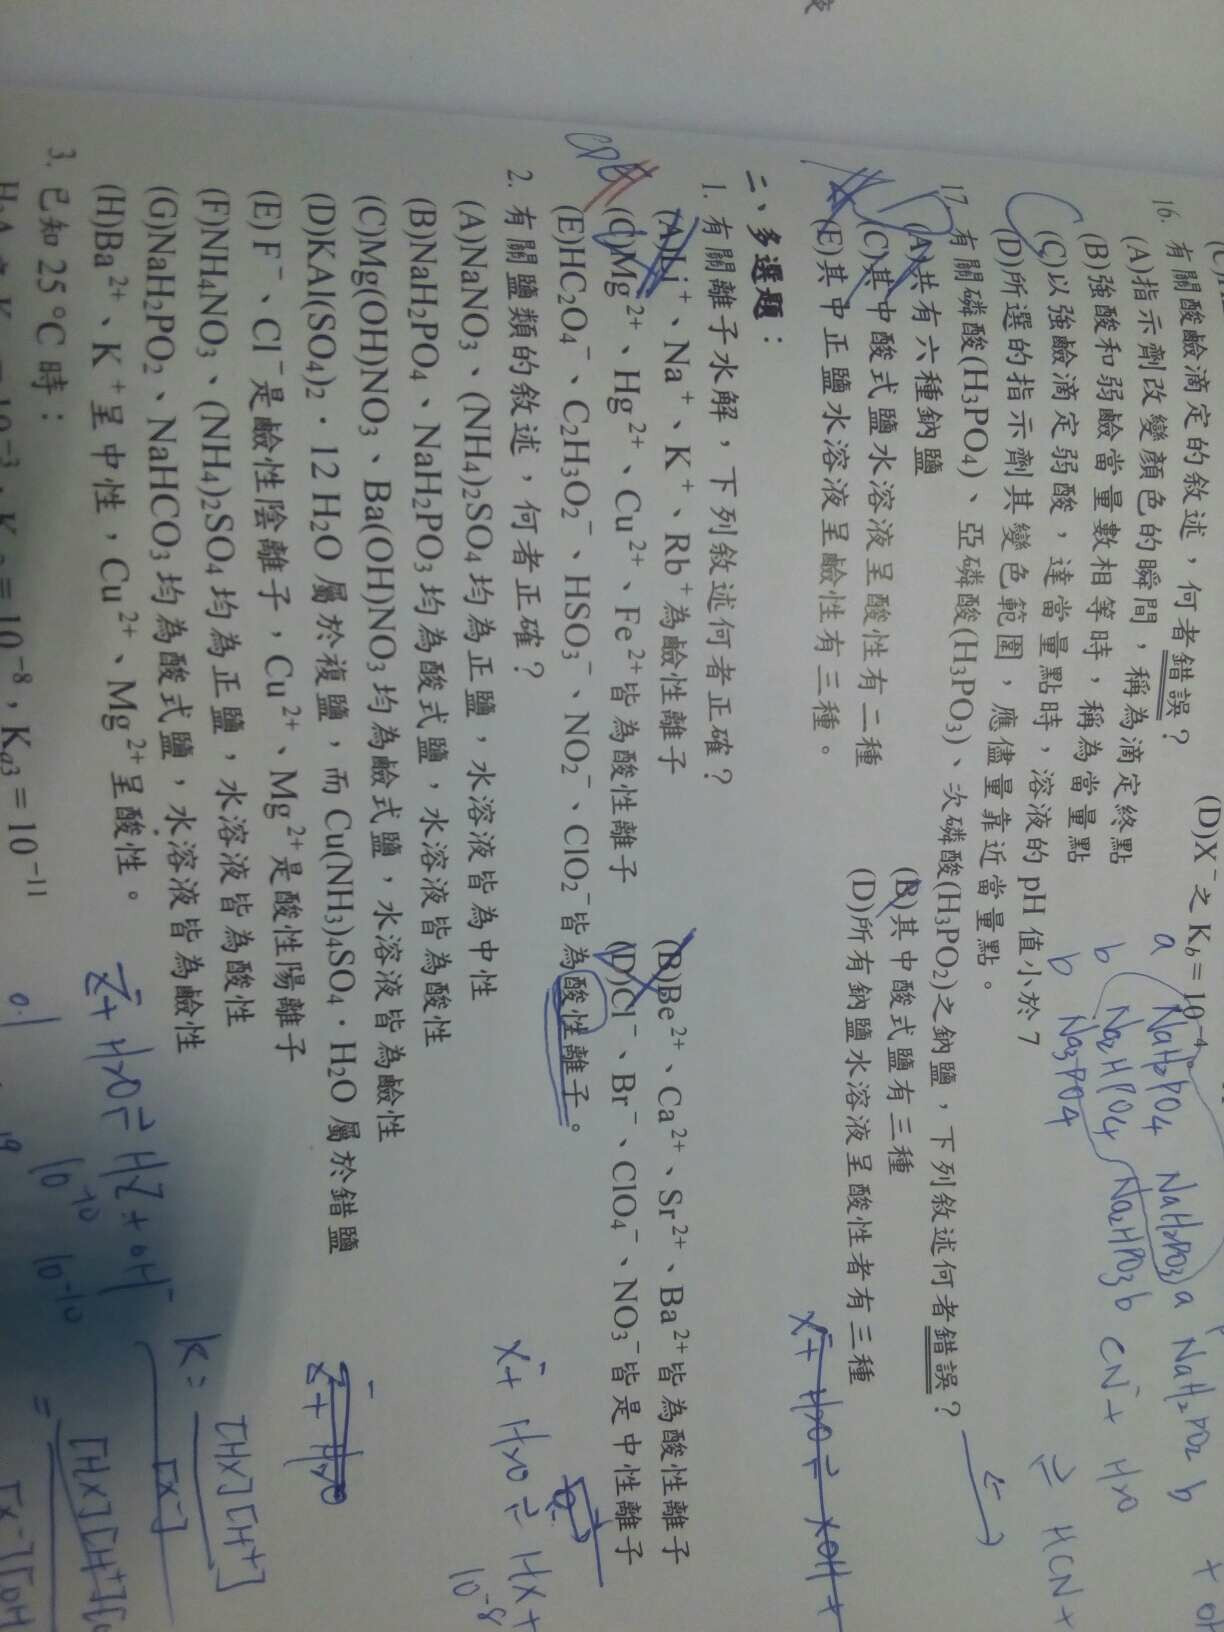 (D)X⁻之 K_b = 10⁻⁴。
16. 有關酸鹼滴定的敘述，何者錯誤？
(A)指示劑改變顏色的瞬間，稱為滴定終點
(B)強酸和弱鹼當量數相等時，稱為當量點
(C)以強鹼滴定弱酸，達當量點時，溶液的 pH 值小於 7
(D)所選的指示劑其變色範圍，應儘量靠近當量點。
17. 有關磷酸(H₃PO₄)、亞磷酸(H₃PO₃)、次磷酸(H₃PO₂)之鈉鹽，下列敘述何者錯誤？
(A)共有六種鈉鹽 (B)其中酸式鹽有三種
(C)其中酸式鹽水溶液呈酸性有二種 (D)所有鈉鹽水溶液呈酸性者有三種
(E)其中正鹽水溶液呈鹼性有三種。
二、多選題：
1. 有關離子水解，下列敘述何者正確？
(A)Li⁺、Na⁺、K⁺、Rb⁺為鹼性離子 (B)Be²⁺、Ca²⁺、Sr²⁺、Ba²⁺皆為酸性離子
(C)Mg²⁺、Hg²⁺、Cu²⁺、Fe²⁺皆為酸性離子 (D)Cl⁻、Br⁻、ClO₄⁻、NO₃⁻皆是中性離子
(E)HC₂O₄⁻、C₂H₃O₂⁻、HSO₃⁻、NO₂⁻、ClO₂⁻皆為酸性離子。
2. 有關鹽類的敘述，何者正確？
(A)NaNO₃、(NH₄)₂SO₄均為正鹽，水溶液皆為中性
(B)NaH₂PO₄、NaH₂PO₃均為酸式鹽，水溶液皆為酸性
(C)Mg(OH)NO₃、Ba(OH)NO₃均為鹼式鹽，水溶液皆為鹼性
(D)KAl(SO₄)₂・12 H₂O 屬於複鹽，而 Cu(NH₃)₄SO₄・H₂O 屬於錯鹽
(E) F⁻、Cl⁻是鹼性陰離子，Cu²⁺、Mg²⁺是酸性陽離子
(F)NH₄NO₃、(NH₄)₂SO₄均為正鹽，水溶液皆為酸性
(G)NaH₂PO₂、NaHCO₃均為酸式鹽，水溶液皆為鹼性
(H)Ba²⁺、K⁺呈中性，Cu²⁺、Mg²⁺呈酸性。
3. 已知 25 °C 時：
= 10⁻⁸，K_a3 = 10⁻¹¹
a NaH₂PO₄ NaH₂PO₃ a NaH₂PO₂ b
b Na₂HPO₄ Na₂HPO₃ b CN⁻ + H₂O
b Na₃PO₄ ⇌ HCN +
X⁻ + H₂O ⇌ XOH +
X⁻ + H₂O ⇌ HX +
10⁻⁸
X⁻ + H₂O
K: [HX][H⁺]
[X⁻]
10⁻¹⁰ 10⁻¹⁰
0.1